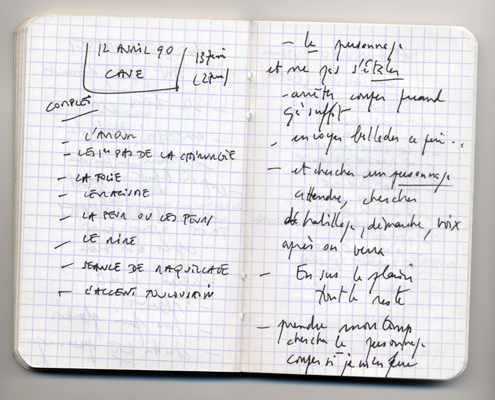 12 AVRIL 90
CAVE
COMPLET
- L'AMOUR
- LES 1er PAS DE LA CHIRURGIE
- LA FOLIE
- LE RACISME
- LA PEUR OU LES PEURS
- LE RIRE
- SEANCE DE MAQUILLAGE
- L'ACCENT TOULOUSAIN
- le personnage
et ne pas s'étaler
- arrêter couper quand
ça suffit
- envoyer ce
- et chercher un personnage
attendre, chercher
habillage, démarche, voix
après on verra
- En sus le plaisir
tout le reste
- prendre mon temps
chercher le personnage
couper si je